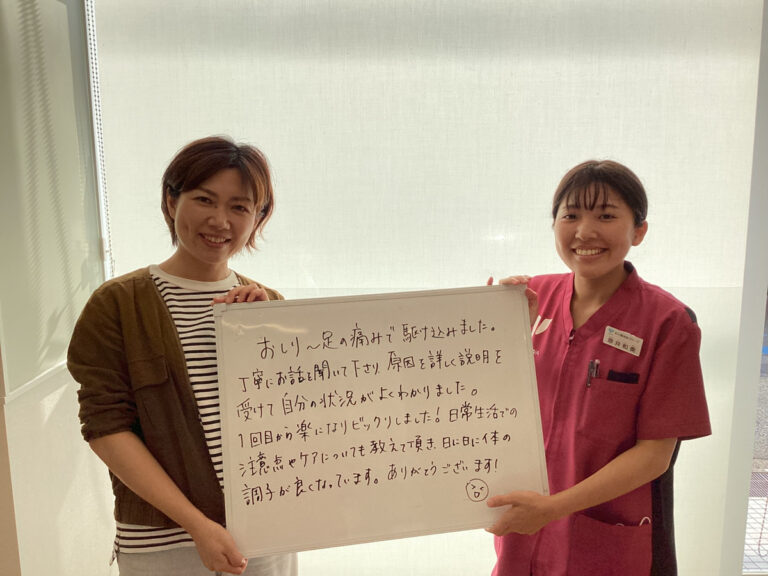 おしり〜足の痛みで駆け込みました。
丁寧にお話を聞いて下さり、原因を詳しく説明を
受けて自分の状況がよくわかりました。
1回目から楽になりビックリしました!日常生活での
注意点やケアについても教えて頂き、日に日に体の
調子が良くなっています。ありがとうございます!